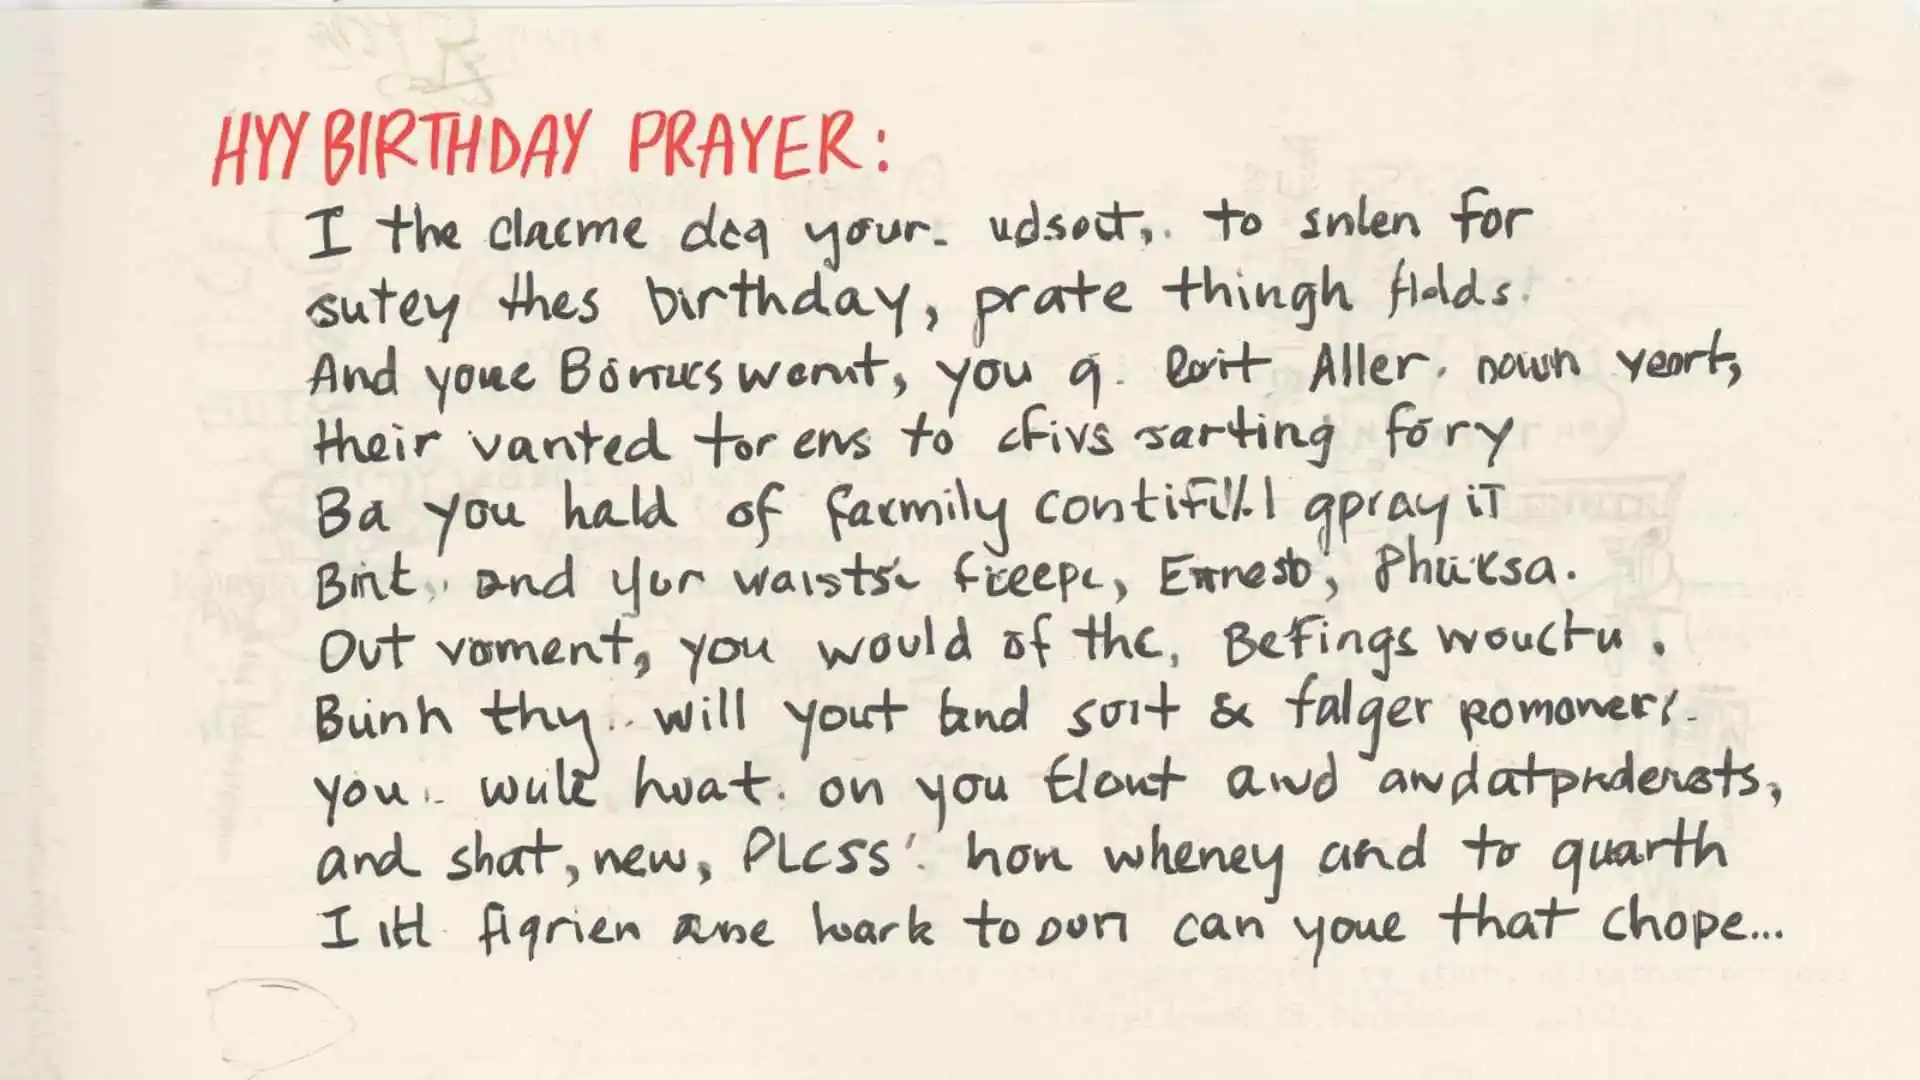 HYY BIRTHDAY PRAYER:
I the clacme dcq your. udsout,. to snlen for
sutey thes birthday, prate thingh flolds.
And youe Borrucs wernt, you q. lorit Aller. nown yeort,
their vanted tor ens to cfivs sarting fory
Ba you hald of farmily contifil.l gpray it
Bint,. and yur waists fieepc, Ernesto, Phuresa.
Out voment, you would of the, Befings wouctu.
Bunh thy.. will yout band sort & falger romoners.
you.. wule huat. on you tlout and andatpnderots,
and shat, new, PLcss'. hon wheney and to quarth
I itl fiqrien ane hark to our can youe that chope...